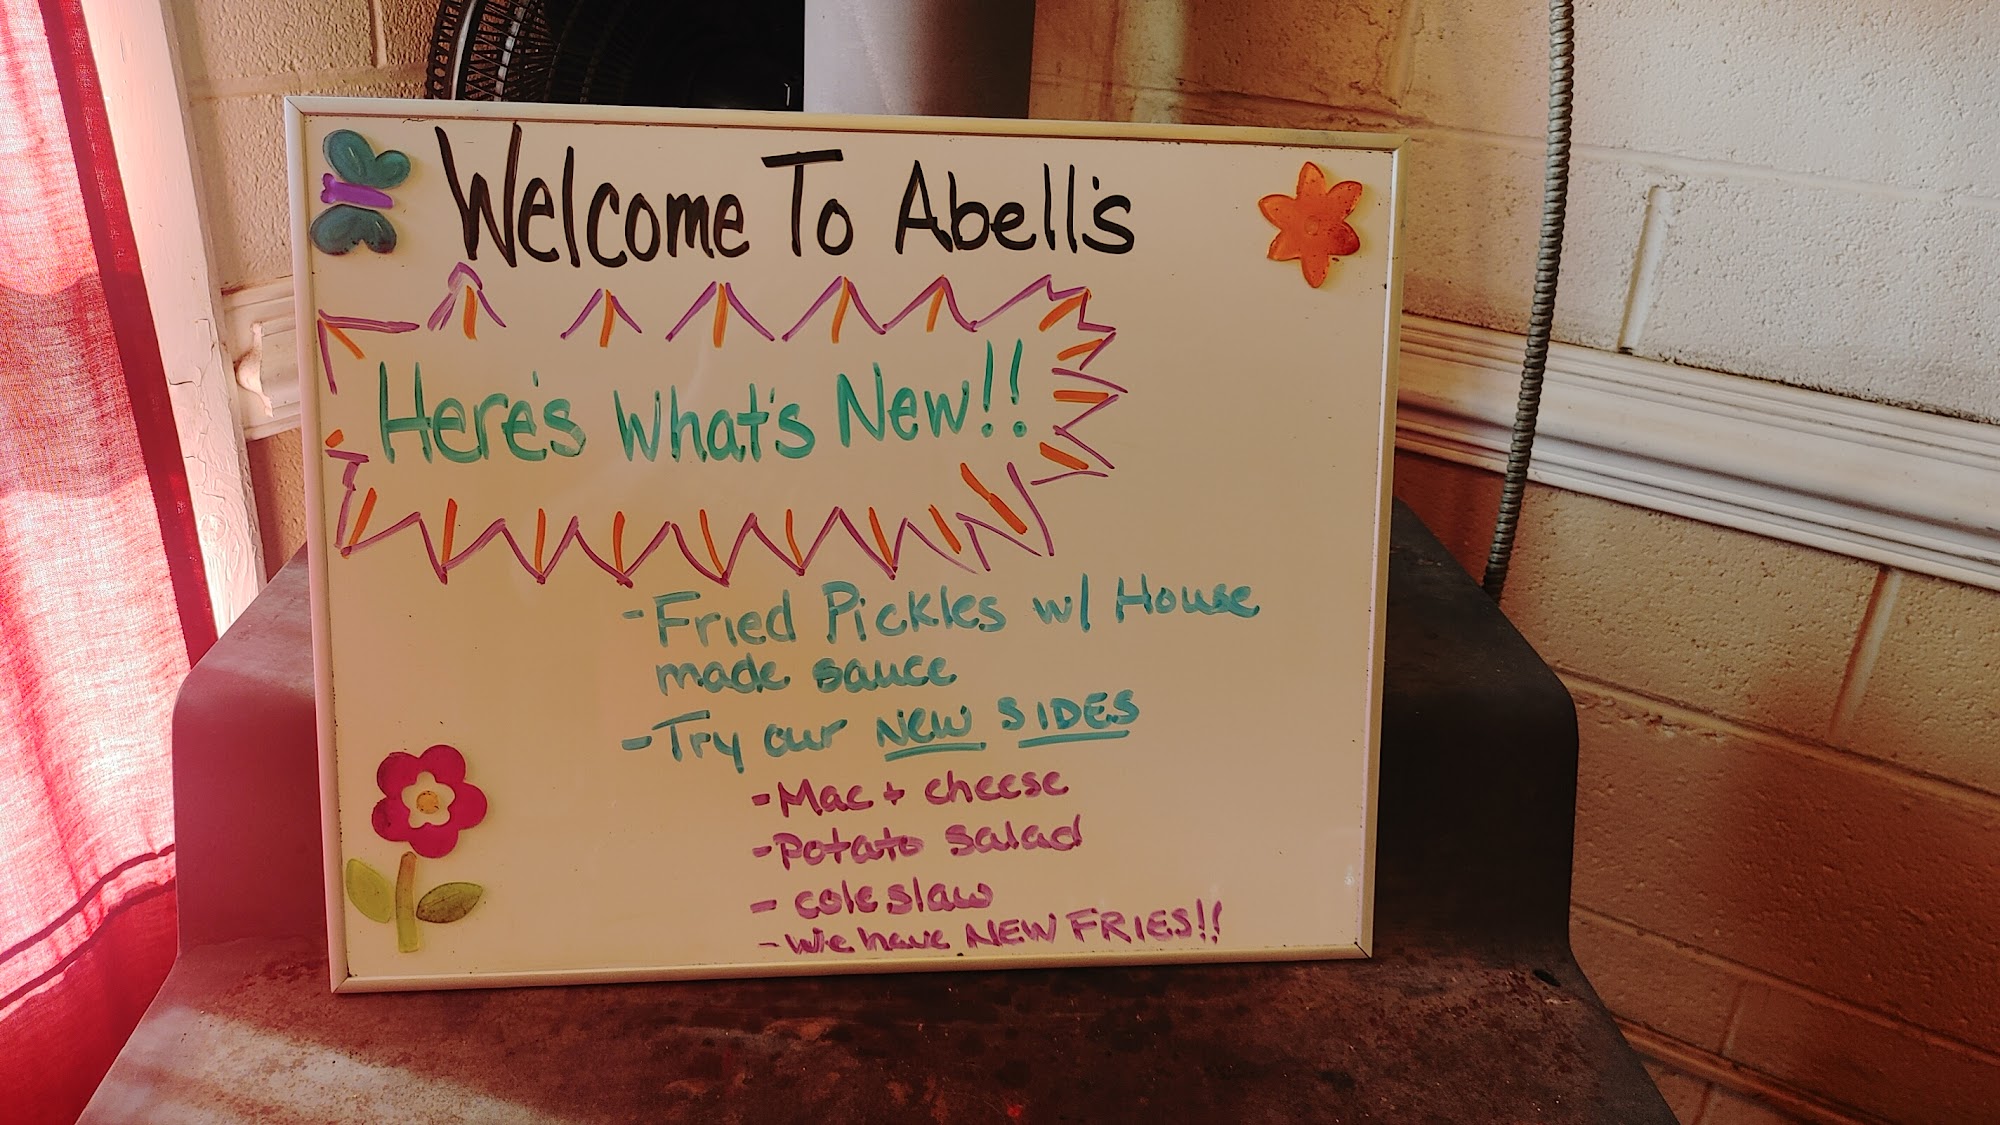 Welcome To Abell's
Here's What's New!!
- Fried Pickles w/ House
made sauce
- Try our NEW SIDES
- Mac + cheese
- Potato salad
- coleslaw
- We have NEW FRIES!!